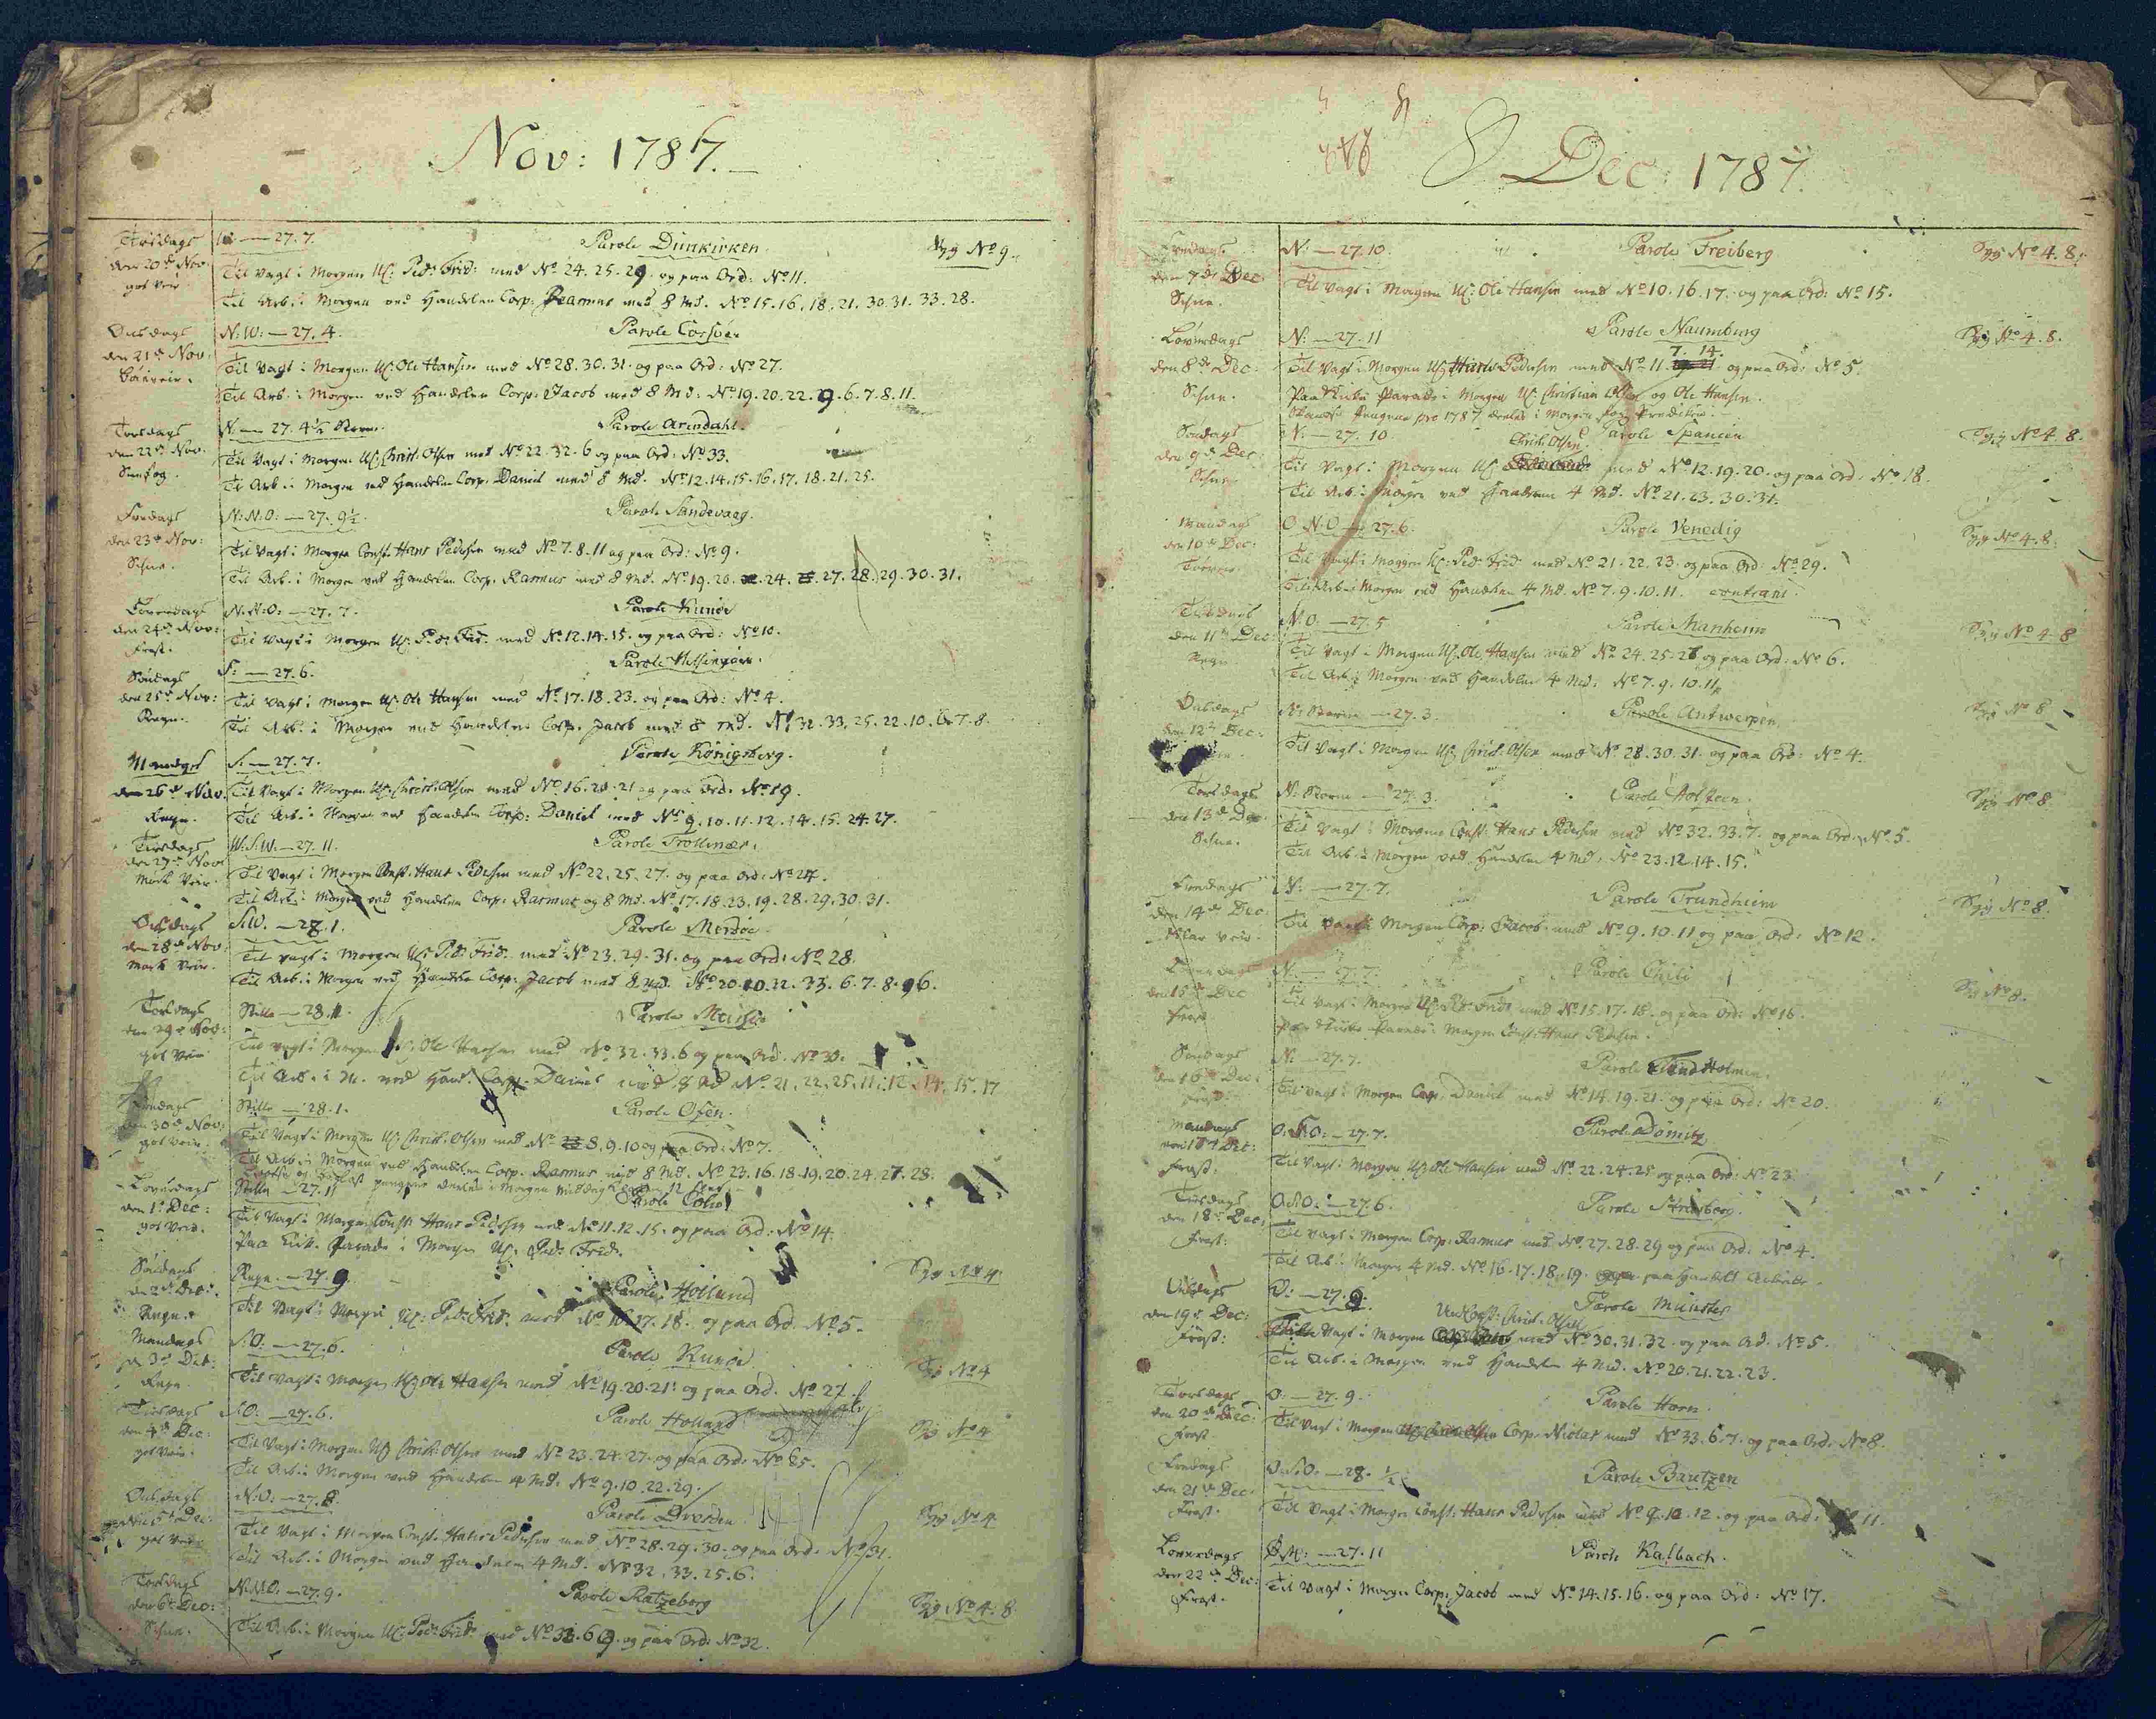 Nov: 1787.
Tirsdags W: — 27.7. Parole Dünkirken. Syg No 9.
den 20de Nov: Til Vagt i Morgen UC: Ped: Frid: med No 24. 25. 29. og paa Ord: No 11.
got Veir Til Arb. i Morgen ved Handelen Corp: Rasmus med 8 Md. No 15. 16. 18. 21. 30. 31. 33. 28.
Onsdags N:W: — 27.4. Parole Corsöer
den 21de Nov: Til Vagt i Morgen UC: Ole Hansen med No 28. 30. 31. og paa Ord: No 27.
Til Arb. i Morgen ved Handelen Corp: Jacob med 8 Md: No 19. 20. 22. 9. 6. 7. 8. 11.
Torsdags N. — 27. 4½ Storm. Parole Arendahl.
den 22de Nov. Til Vagt i Morgen UC: Christ: Olsen med No 22. 32. 6 og paa Ord: No 33.
Sneefog. Til Arb. i Morgen ved Handelen Corp. Daniel med 8 Md. No 12. 14. 15. 16. 17. 18. 21. 25.
Fredags N:N:O: — 27. 9½. Parole Sandevaag.
den 23de Nov: Til Vagt i Morgen Const. Hans Pedersen med No 7. 8. 11 og paa Ord: No 9.
Schne. Til Arb. i Morgen ved Handelen Corp. Rasmus med 8 Md. No 19. 20. 24. 27. 28. 29. 30. 31.
Löverdags N:N:O: — 27. 7. Parole Runöe
den 24de Nov: Til Vagt i Morgen UC: Ped: Frid: med No 12. 14. 15. og paa Ord: No 10.
Frost.
Söndags S: — 27.6. Parole Helsingöer.
den 25de Nov: Til Vagt i Morgen UC: Ole Hansen med No 17. 18. 23. og paa Ord: No 4.
Regn. Til Arb: i Morgen ved Handelen Corp. Jacob med 8 Md. No 32. 33. 25. 22. 10. 6. 7. 8.
Mandags S. — 27. 7. Parole Königsberg.
den 26de Nov. Til Vagt i Morgen UC: Christ: Olsen med No 16. 20. 21 og paa Ord: No 19.
Regn. Til Arb. i Morgen ved Handelen Corp: Daniel med No 9. 10. 11. 12. 14. 15. 24. 27.
Tirsdags W:S:W: — 27. 11. Parole Trollenæs.
den 27de Nov: Til Vagt i Morgen Const. Hans Pedersen med No 22. 25. 27. og paa Ord: No 24.
Mörk Veir. Til Arb. i Morgen ved Handelen Corp: Rasmus og 8 Md. No 17. 18. 23. 19. 28. 29. 30. 31.
Onsdags S.W. — 28. 1. Parole Merdöe
den 28de Nov: Til Vagt i Morgen UC: Ped: Frid: med No 23. 29. 31. og paa Ord: No 28.
Mörk Veir. Til Arb. i Morgen ved Handelen Corp: Jacob med 8 Md. No 20. 10. 32. 33. 6. 7. 8. 96.
Torsdags Stille — 28. 1. Parole
den 29de Nov: Til Vagt i Morgen UC: Ole Hansen med No 32. 33. 6 og paa Ord: No 30.
got Veir Til Arb. i M. ved Hand. Corp. Daniel med 8 Md No 21. 22. 25. 11. 12. 14. 15. 17
Fredags Stille — 28. 1. Parole Ofen.
den 30de Nov: Til Vagt i Morgen UC: Christ: Olsen med No 8. 9. 10 og paa Ord: No 7.
got Veir. Til Arb. i Morgen ved Handelen Corp. Rasmus med 8 Md. No 23. 16. 18. 19. 20. 24. 27. 28.
Löverdags Stille — 27. 11
den 1te Dec: Til Vagt i Morgen Const: Hans Pedersen med No 11. 12. 15. og paa Ord: No 14.
got Veir. Paa Kirk. Parade i Morgen UC: Ped: Frid.
Söndags Regn. — 27. 9. Parole Holland Syg No 4
den 2de Dec: Til Vagt i Morgen UC: Ped: Frid: med No 16. 17. 18. og paa Ord. No 5.
Regn.
Mandags S.O: — 27. 6. Parole Runöe Syg No 4
den 3de Dec: Til Vagt i Morgen UC: Ole Hansen med No 19. 20. 21. og paa Ord. No 27.
Regn.
Tirsdags S.O: — 27. 6. Parole Holland Syg No 4
den 4de Dec: Til Vagt i Morgen UC: Christ: Olsen med No 23. 24. 27. og paa Ord: No 25.
got Veir. Til Arb. i Morgen ved Handelen 4 Md. No 9. 10. 22. 29.
Onsdags N:O: — 27. 8. Parole Dresden Syg No 4
den 5te Dec: Til Vagt i Morgen Const. Hans Pedersen med No 28. 29. 30. og paa Ord. No 31.
got Veir Til Arb. i Morgen ved Handelen 4 Md. No 32. 33. 25. 6.
Torsdags N:N:O: — 27. 9. Parole Ratzeborg Syg No 4. 8
den 6te Dec: Til Arb. i Morgen UC: Ped: Frid: med No og paa Ord: No 32.
Schne.
Dec: 1787.
Fredags N: — 27. 10. Parole Freiberg Syg No 4. 8.
den 7de Dec: Til Vagt i Morgen UC: Ole Hansen med No 10. 16. 17. og paa Ord: No 15.
Schne.
Löverdags N: — 27. 11 Parole Naumburg Syg No 4. 8.
7. 14.
den 8de Dec: Til Vagt i Morgen UC Hans Pedersen med No 11. og paa Ord: No 5.
Schne. Paa Kirke Parade i Morgen UC Christian Olsen og Ole Hansen.
Söndags N: — 27. 10 Christ: Olsen Parole Spancen Syg No 4. 8.
den 9de Dec: Til Vagt i Morgen UC. med No 12. 19. 20. og paa Ord: No 18.
Schne Til Arb. i Morgen ved Handelen 4 Md. No 21. 23. 30. 31.
Mandags O.N.O — 27. 6. Parole Venedig Syg No 4. 8.
den 10de Dec: Til Vagt i Morgen UC: Ped: Frid: med No 21. 22. 23. og paa Ord: No 29.
Til Arb. i Morgen ved Handelen 4 Md. No 7. 9. 10. 11. contrant.
Tirsdags N.O. — 27. 5 Parole Manheim Syg No 4. 8
den 11te Dec: Til Vagt i Morgen UC. Ole Hansen med No 24. 25. 27 og paa Ord: No 6.
Regn. Til Arb. i Morgen ved Handelen 4 Md: No 7. 9. 10. 11.
Onsdags N: Storm — 27. 3. Parole Antwerpen. Syg No 8
den 12te Dec: Til Vagt i Morgen UC Christ: Olsen med No 28. 30. 31. og paa Ord: No 4.
Torsdags N. Storm — 27. 3. Parole Holsteen. Syg No 8
den 13de Dec. Til Vagt i Morgen Const: Hans Pedersen med No 32. 33. 7. og paa Ord: No 5.
Schne. Til Arb. i Morgen ved Handelen 4 Md. No 23. 12. 14. 15.
Fredags N: — 27. 7. Parole Trundheim Syg No 8.
den 14de Dec Til Vagt i Morgen Corp: Jacob med No 9. 10. 11 og paa Ord: No 12.
Klar Veir.
Löverdags N. — 27. 7. Parole Chili Syg No 8.
den 15de Dec Til Vagt i Morgen UC: Ped: Frid: med No 15. 17. 18. og paa Ord: No 16.
Frost Paa Kirke Parade i Morgen Const: Hans Pedersen.
Söndags N: — 27. 7. Parole Lindholmen.
den 16de Dec: Til Vagt i Morgen Corp. Daniel med No 14. 19. 21. og paa Ord: No 20.
Frost.
Mandags O.S.O: — 27. 7. Parole Dömitz
den 17de Dec: Til Vagt i Morgen UC Ole Hansen med No 22. 24. 25 og paa Ord: No 23
Frost:
Tirsdags O.S.O: — 27. 6. Parole
den 18de Dec: Til Vagt i Morgen Corp. Rasmus med No 27. 28. 29 og paa Ord: No 4.
Frost: Til Arb. i Morgen 4 Md. No 16. 17. 18. 19. paa Handels Arbeide.
Onsdags O: — 27. 9. Parole Münster
Christ: Olsen
den 19de Dec: Til Vagt i Morgen med No 30. 31. 32. og paa Ord. No 5.
Frost: Til Arb. i Morgen ved Handelen 4 Md. No 20. 21. 22. 23.
Torsdags O: — 27. 9. Parole Horn.
den 20de Dec: Til Vagt i Morgen Corp. Niclas med No 33. 6. 7. og paa Ord: No 8.
Frost
Fredags O.S.O. — 28. ½ Parole Bautzen
den 21de Dec: Til Vagt i Morgen Const: Hans Pedersen med No 9. 10. 12. og paa Ord: No 11.
Frost.
Löverdags — 27. 11 Parole Kalbach.
den 22de Dec: Til Vagt i Morgen Corp: Jacob med No 14. 15. 16. og paa Ord: No 17.
Frost.